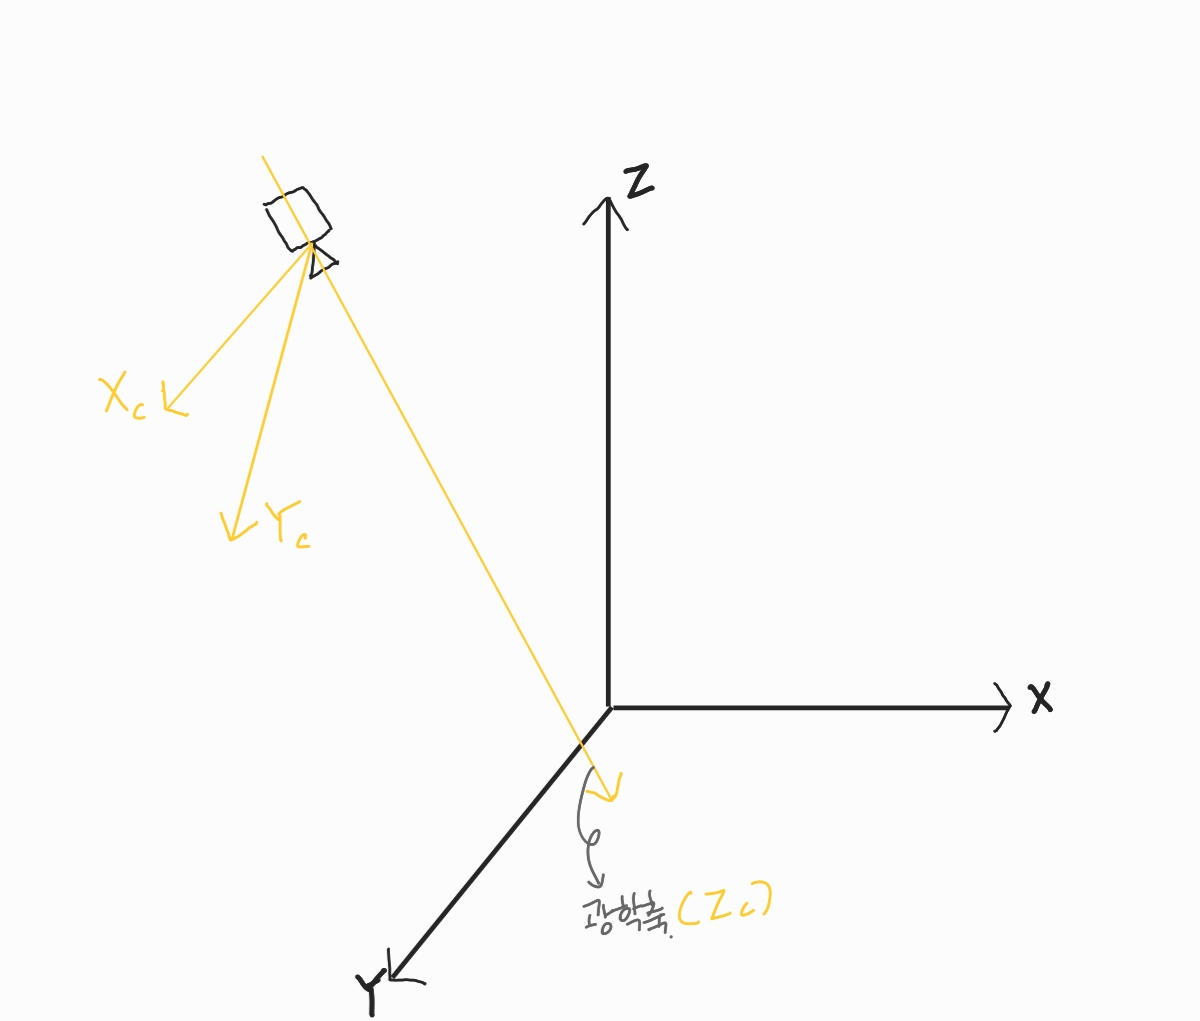 Z
Xc
Yc
X
광학축. (Zc)
Y